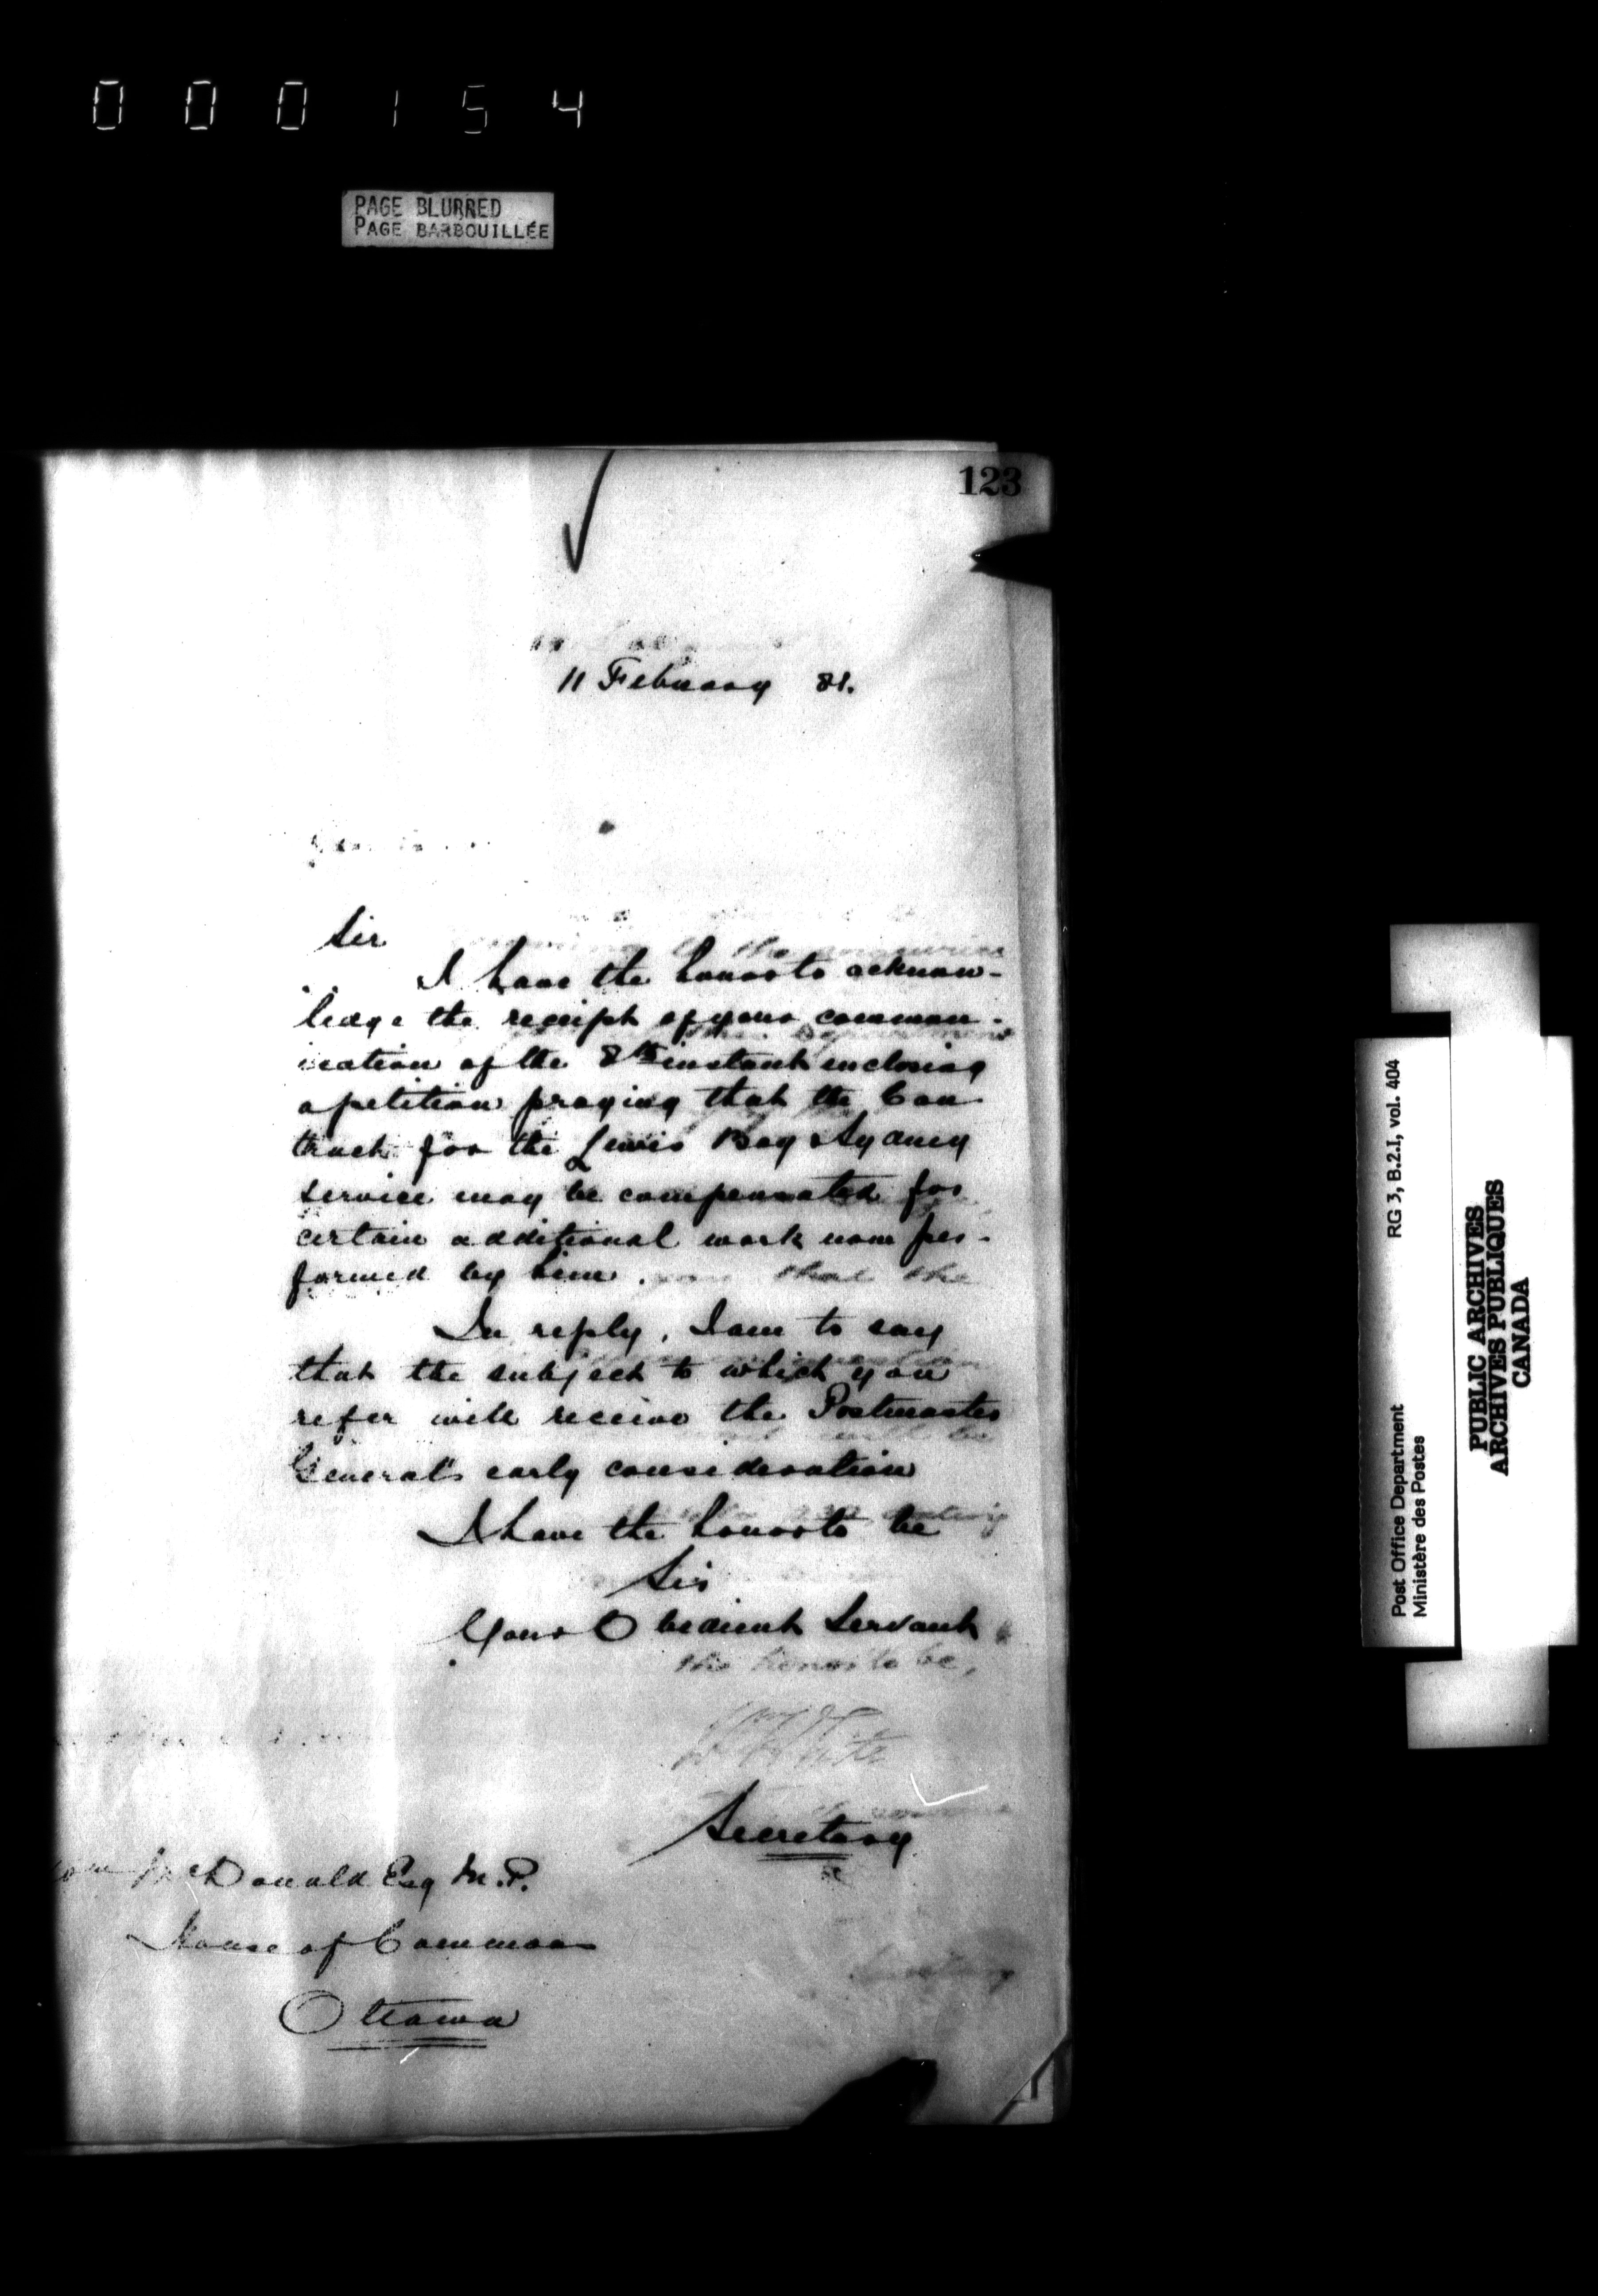 000154
PAGE BLURRED
PAGE BARBOUILLÉE
123
11 February 81.
Sir
I have the honor to acknow-
ledge the receipt of your commun-
ication of the 8th instant enclosing
a petition praying that the Con
tract for the Lewis Bay & Sydney
service may be compensated for
certain additional work now per-
formed by him.
In reply, I am to say
that the subject to which you
refer will receive the Postmaster
General's early consideration
I have the honor to be
Sir
Your Obedient Servant
the honor to be,
Secretary
McDonald Esq M.P.
House of Commons
Ottawa
Post Office Department
Ministère des Postes
RG 3, B.2.I, vol. 404
PUBLIC ARCHIVES
ARCHIVES PUBLIQUES
CANADA